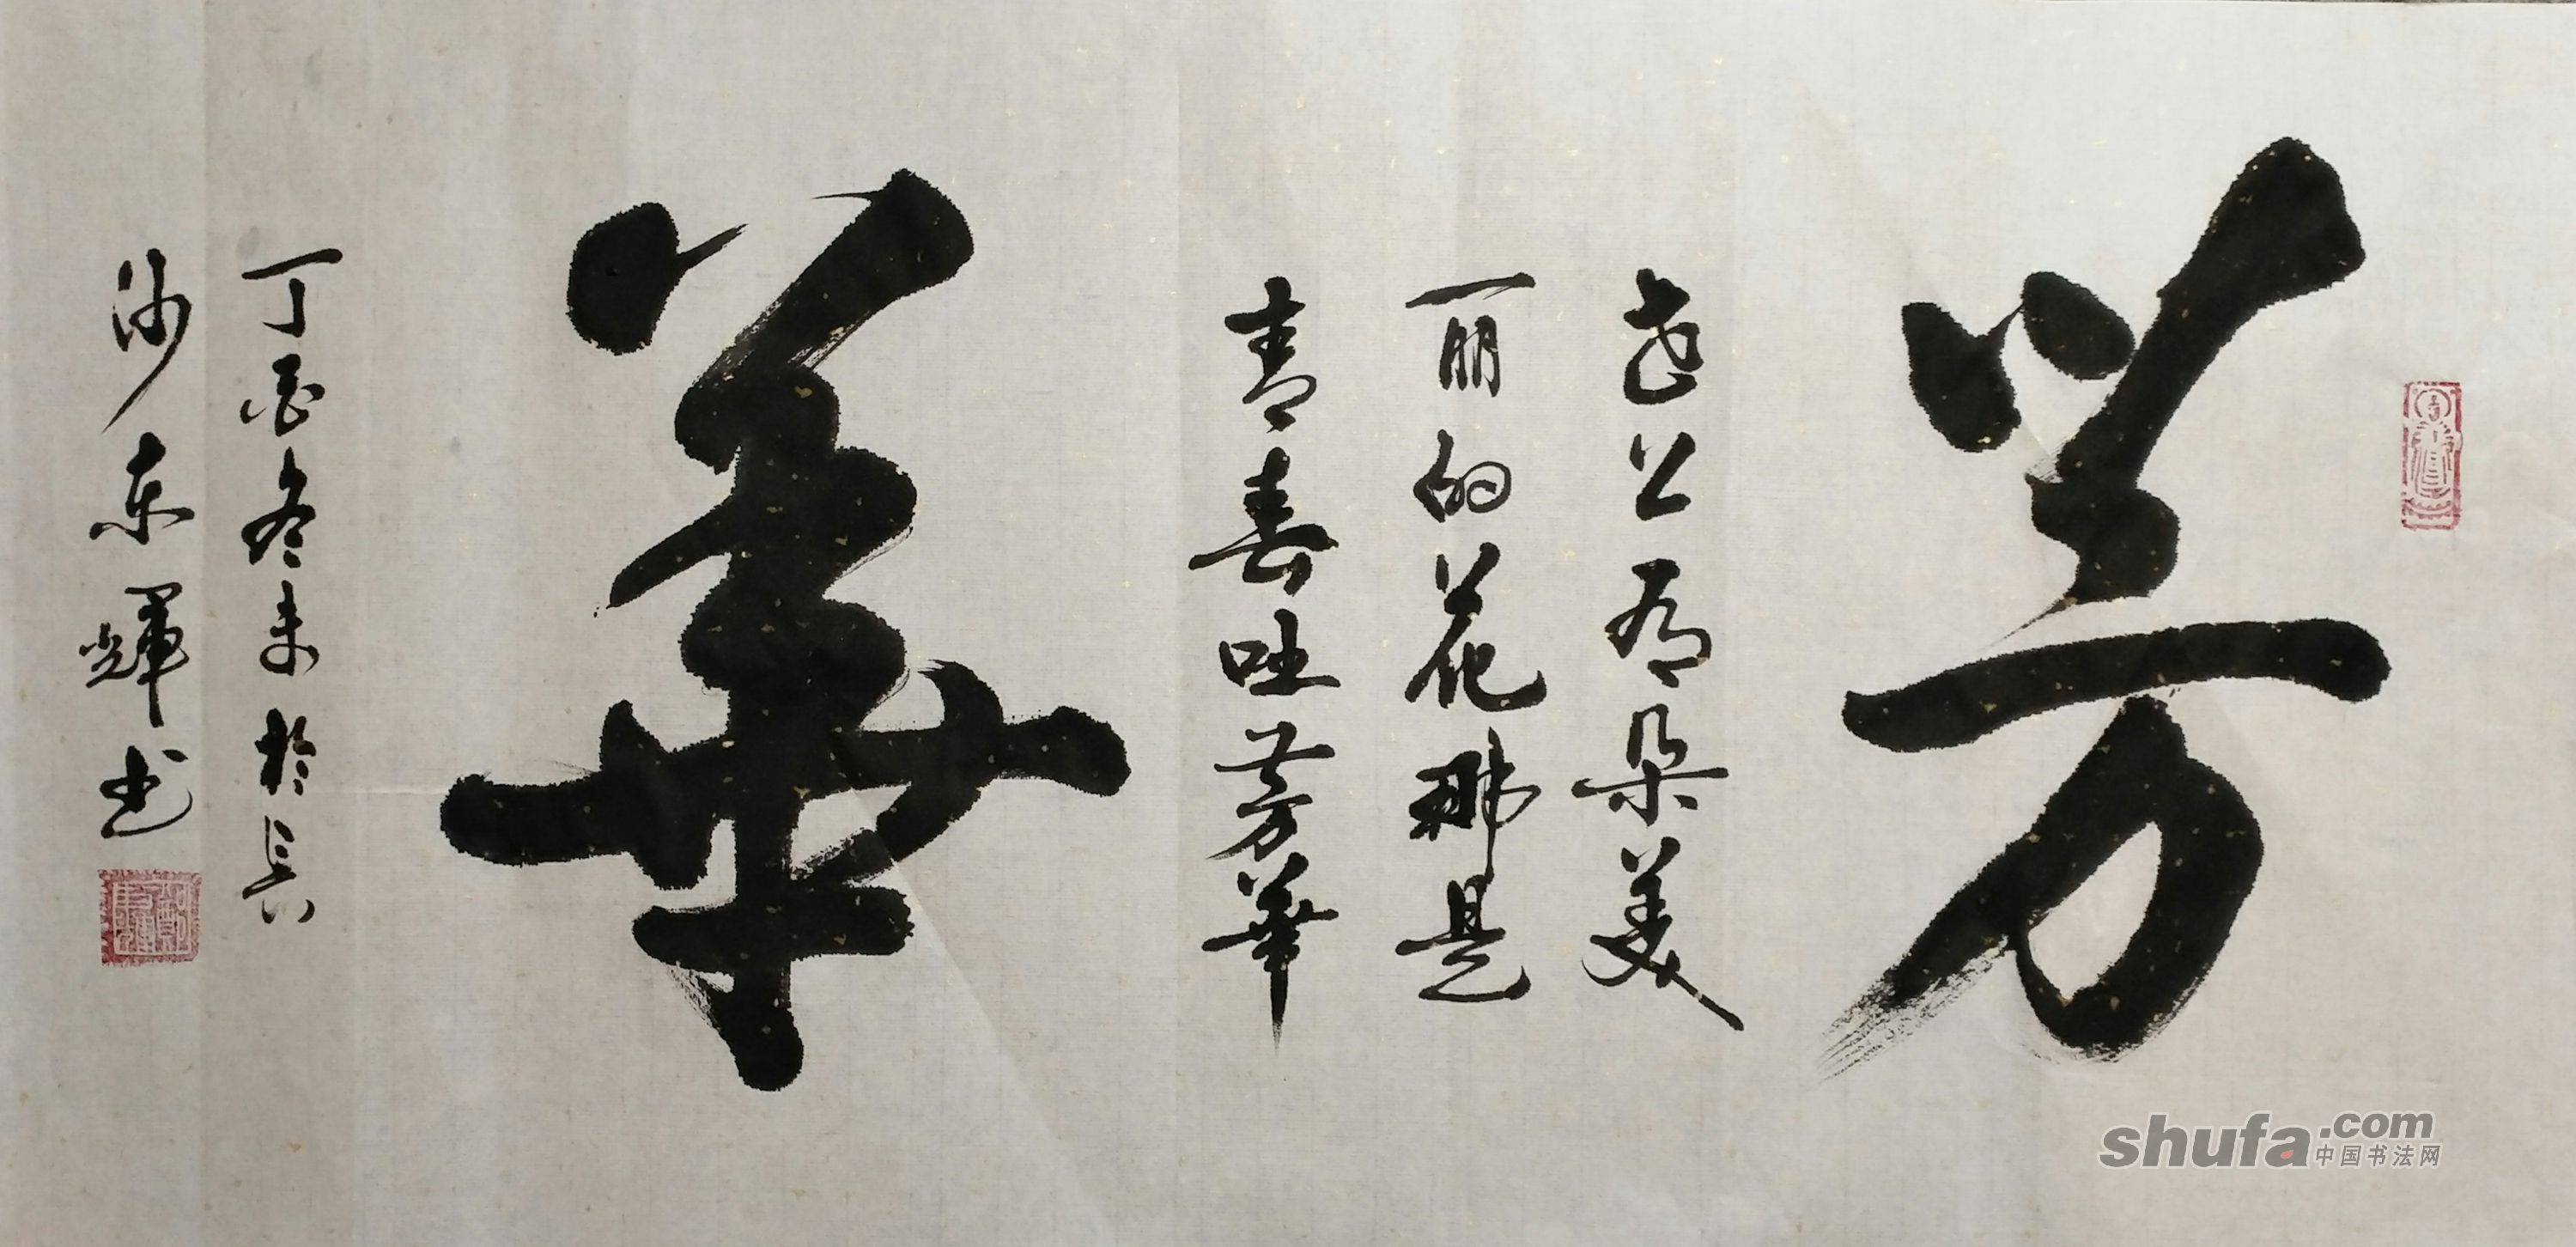 芳
世上有朵美
丽的花那是
青春吐芳華
華
丁酉冬末於長
沙东輝书
shufa.com
中国书法网